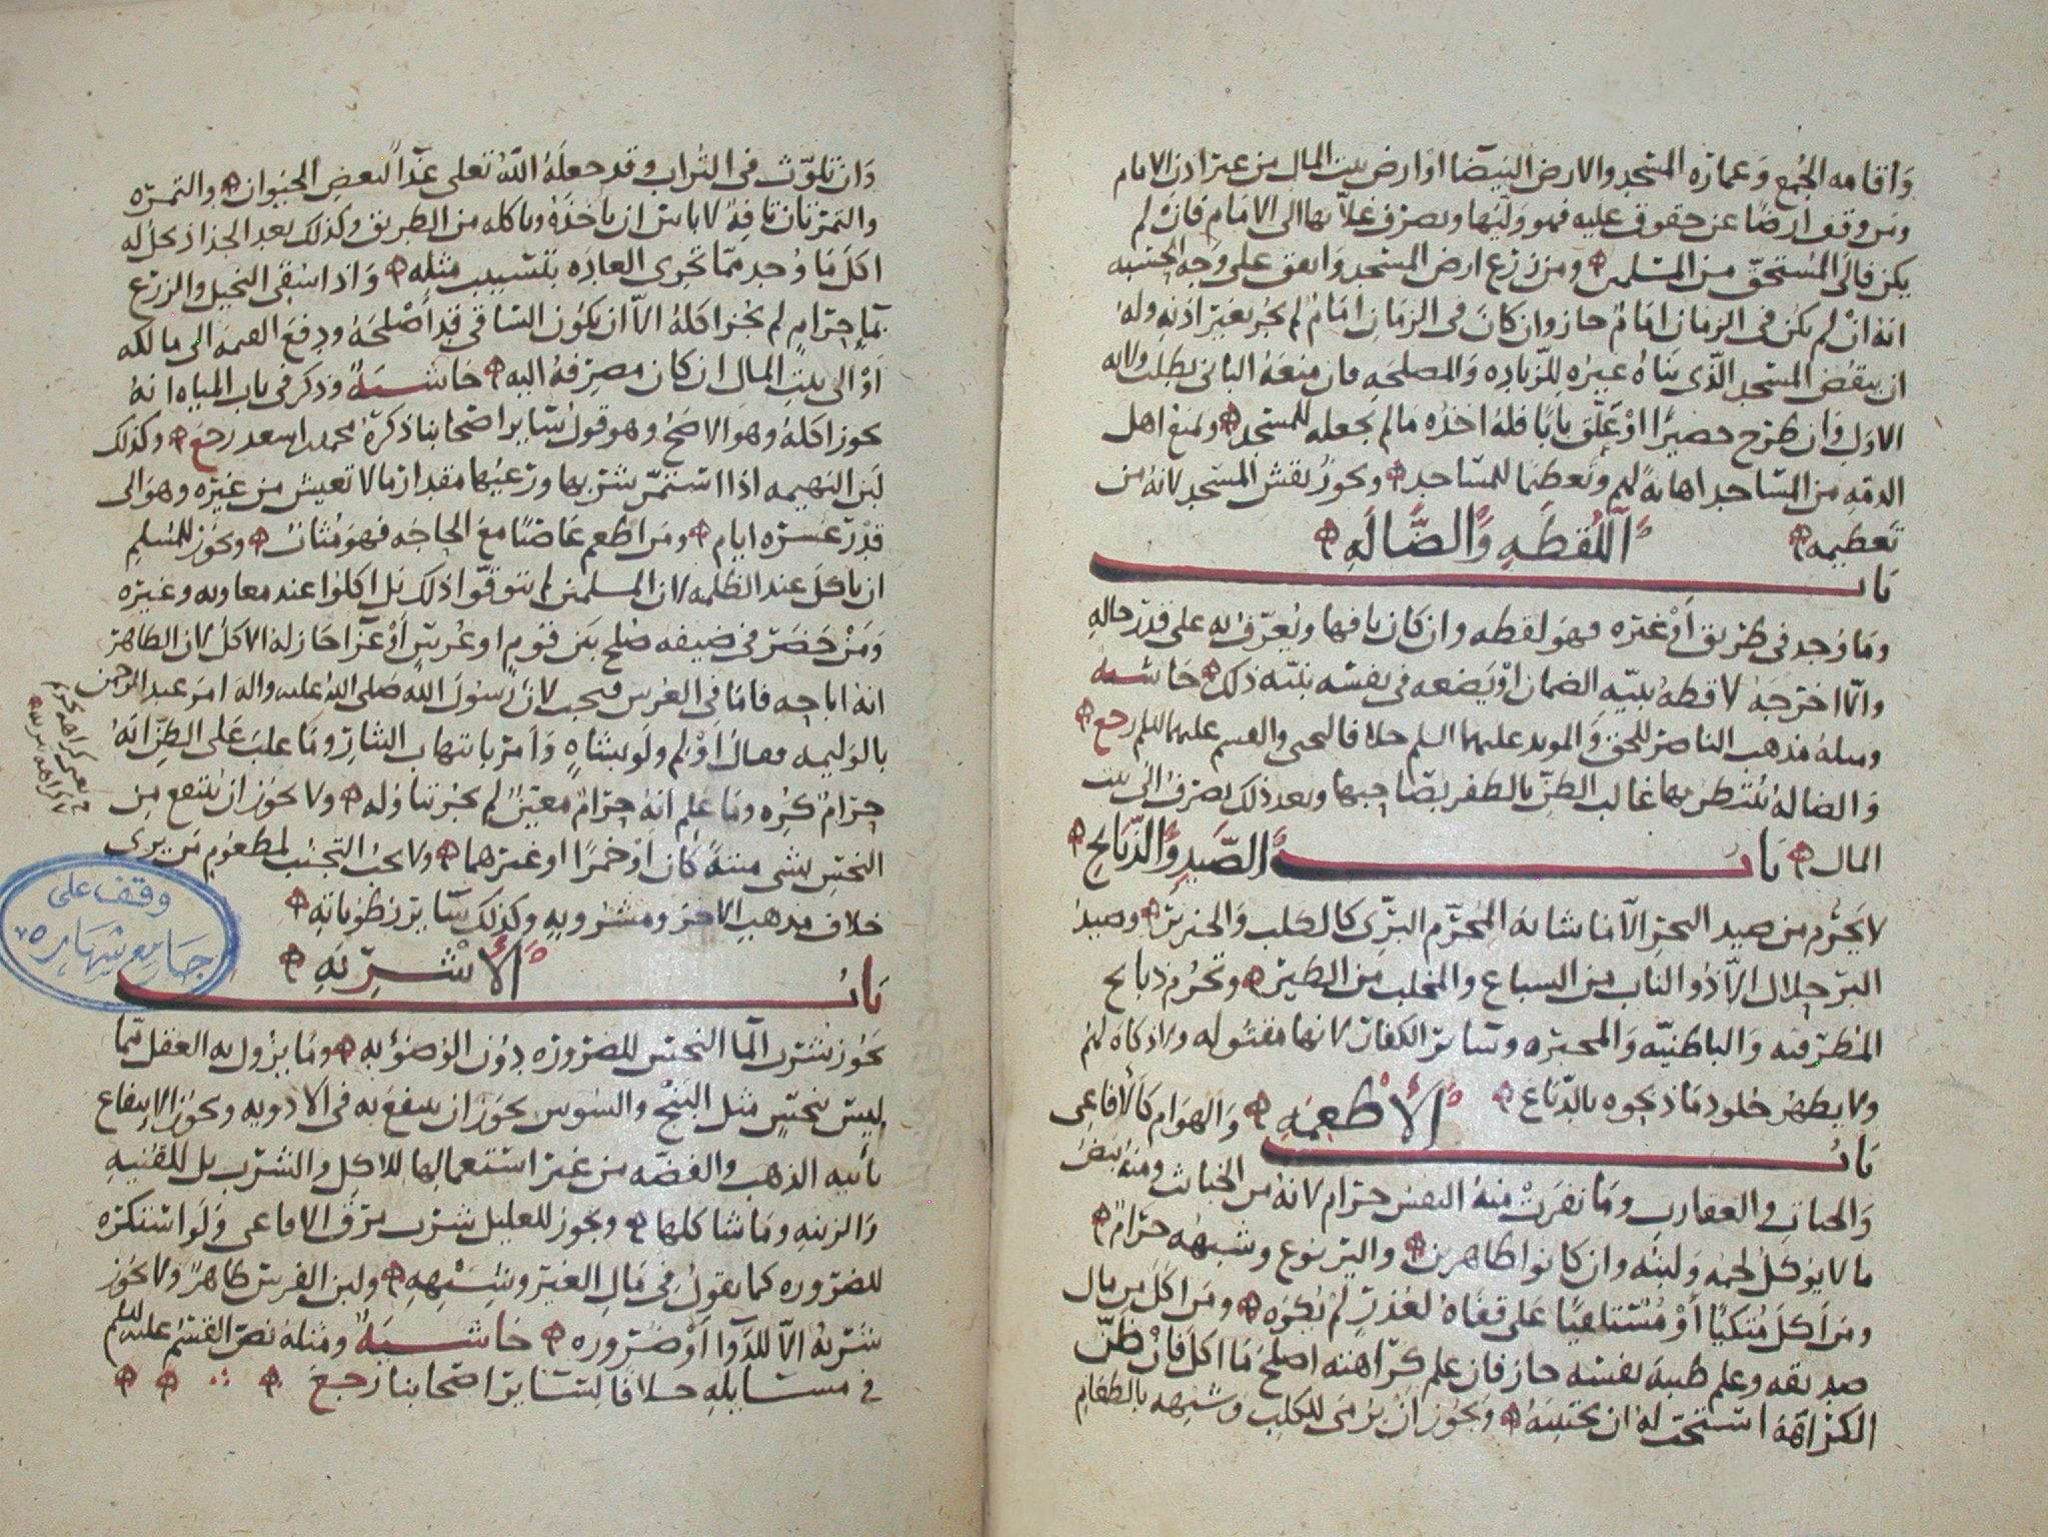 وَاقامه الجُمع وَعمارَه المسَجد والارض البَيضَا اوْ ارض بيت المال من غير اذن الامام
ومَن وَقف ارضًا عن حقوق عليه فهو وَليّها ويصرف غلاّتها الى الامَام فان لم
يكن فالى المُستحقّ من المسلمين ومن زرَع ارض المسَجد وَانفق على وَجه الحسْبه
انه انْ لم يكن فى الزمان امَامٌ جاز وان كانَ فى الزمَان امَامٌ لم يجُز بغير اذنهِ وله
ان ينقض المسَجد الّذى بَنَاهُ غيره للزّيادِه وَالمصلحَهِ فان منعَهُ البانى بطلت ولايه
الاوّل وَان طرَح حصيرًا اوْ عَلّق بابًا فلهُ اخذه مَا لم يجعله للمسَجد ويمنع اهل
الذمّه من المسَاجد اهانهً لهم وَتعظيمًا للمسَاجد ويجوزُ نقش المسَجد لانهُ من
تعظيمه
بَابُ اللُقطَهِ وَالضَّالَهِ
ومَا وُجد فى طرَيق اَوْ غيره فهوَ لقطه وان كان تافها ويُعرّف بهِ على قدر حالهِ
والّا اخرَجهُ لاقطهُ بنيّه الضمان اوْ يَضعه فى نفسه بنيّه ذلك حَاشيه
ومثلهُ مذهب الناصر للحق وَالمويد عليهما السلم خلافا ليحيى والقسم عليهما السلم رجع
وَالضالهُ يُنتظر بها غالب الظنّ بالظفر بصَاحبها وبعد ذلك يصرَفُ الى بيت
المال بَابُ الصَّيدِ وَالذّبَايح
لا يَحرُم من صيد البحر الّا مَا شابهَ المُحرّم البرّى كالكلب وَالخنزير وصيدُ
البرّ حلالٌ الاّ ذُو الناب من السباع والمخلب من الطير وتحرُم ذبايح
المُطرّفيه وَالباطنيّه وَالمجبرَه وسَايرَ الكفار لانها مقتوله ولا ذكاهَ لهُم
ولا يطهُر جلود مَا ذبحوه بالدّباغ
بَابُ الاَطعِمَهِ وَالهوَام كَالافاعى
وَالحيات والعقارب ومَا نفرَتْ منهُ النفسُ حرَام لانهُ من الخبايث ومنهُ بَيضُ
مَا لا يؤكلُ لحمه وَلبنُه وان كانوا طاهرين واليَربوع وشبهُه حرَامٌ
ومَن اَكلَ مُتكيًا اَوْ مُستلقيًا عَلى قفاهُ لعُذرٍ لمْ يُكرَه ومَن اكلَ من مَال
صديقه وعلم طيبهَ نفسه جاز فان علم كرَاهته اصلحَ مَا اكلَ فان ظنّ
الكرَاهَه استحبّ لهُ ان يجتنبَهُ وَيَجُوز انْ يَرْمى للكلب وشبههِ بالطعَامِ
وَان تلوّث فى التُراب وقد جعلَهُ اللهُ تعلى غذآءً لبعض الحَيوان والتمرَه
والتمرَتان تافِهٌ لا باسَ ان يَاخذَهُ وياكله من الطريق وكذلك بعد الجذاذ يحلّ له
اكل مَا وُجد ممّا تجرى العادَه بتسْييب مثله وَاذا سُقى النخيل والزرع
بمآءٍ حرَامٍ لم يجُز اكلهُ الاّ ان يكوُن السَاقى قد أَصْلحَهُ ودفعَ القيمَه الى مالكه
اَوْ الى بيْتِ المال ان كان مصرفهُ اليه حَاشيَهٌ وذكر فى باب المياه انهُ
يجوز اكلهُ وهوَ الاصَحّ وهو قول سَاير اصَحابنا ذكرَهُ محمد بن اسعد رجَع وكذلك
لبَن البَهيمه اذا استمَرّ شربها ورَعيُها مقدار مَا لا تعيش من غيرَه وهوَ الى
قدْر عشرَه ايام ومَن اطعم غَاصبًا معَ الحاجَه فهوَ مُثابٌ ويجَوز للمُسلِمِ
ان ياكلَ عند الظلمه لان المسلمين لم يتوقّوا ذلك بَل اكلوُا عند معاويه وغيره
وَمَنْ حَضرَ فى ضيفه صُلح بَين قوم اوعُرسٍ اَوْ عَزآءٍ جَاز لهُ الاكلُ لان الظاهرَ
انهُ اباحه فامَا فى العُرس فيجب لانّ رَسُولَ اللهِ صَلى اللهُ عليه واله امَرَ عبد الرحمن
بالوَليمه فقالَ اَوْلم ولَو بشاهٍ وَاَمرَ بانتهاب النثارَ ومَا غلبَ عَلى الظنّ انهُ
حرَامٌ كُره ومَا عُلم انهُ حرَامٌ معَيّنٌ لم يجُز تناوُله ولا يجوَز انْ يُنتفع مِن
النجسِ بشَى ميتهً كان اَوْ خمرًا اوغيرَهما ولا يجبُ التجنّب لمطعوُم مَن يرى
خلاف مذهبِ الاخر ومشروبهِ وكذلك سَايرَ رطوُباتِه
بَابُ الاَشْرِبَهِ
يَجوُز شُربُ المآ النجسَ للضرورَه دوُن الوُضوُءِ به ومَا يزوُل به العقل ممّا
ليسَ بنجسٍ مثل البَنْج والسَوس يجوَز ان ينتفع به فى الادويه ويجوَز الانتفاع
بآنيه الذهب والفضّه من غير استعمالها للاكل والشرب بل للقنيهِ
وَالزينهِ ومَا شاكلها ويجوز للعليل شرَب مرَق الافاعى وَلو استنكرَه
للضرَوره كما يقولُ فى مَالِ الغير وشِبْهِه ولبن الفرسَ طاهرٌ ولا يَجوز
شرَبهُ الاّ للدّوآ اَوْ ضرَوره حَاشيَهٌ ومثلهُ نصّ القسَم عليه السلم
فى مسَايلهِ خلافًا لسَايرَ اصحابنا رَجعَ
وقف على
جامع شهاره